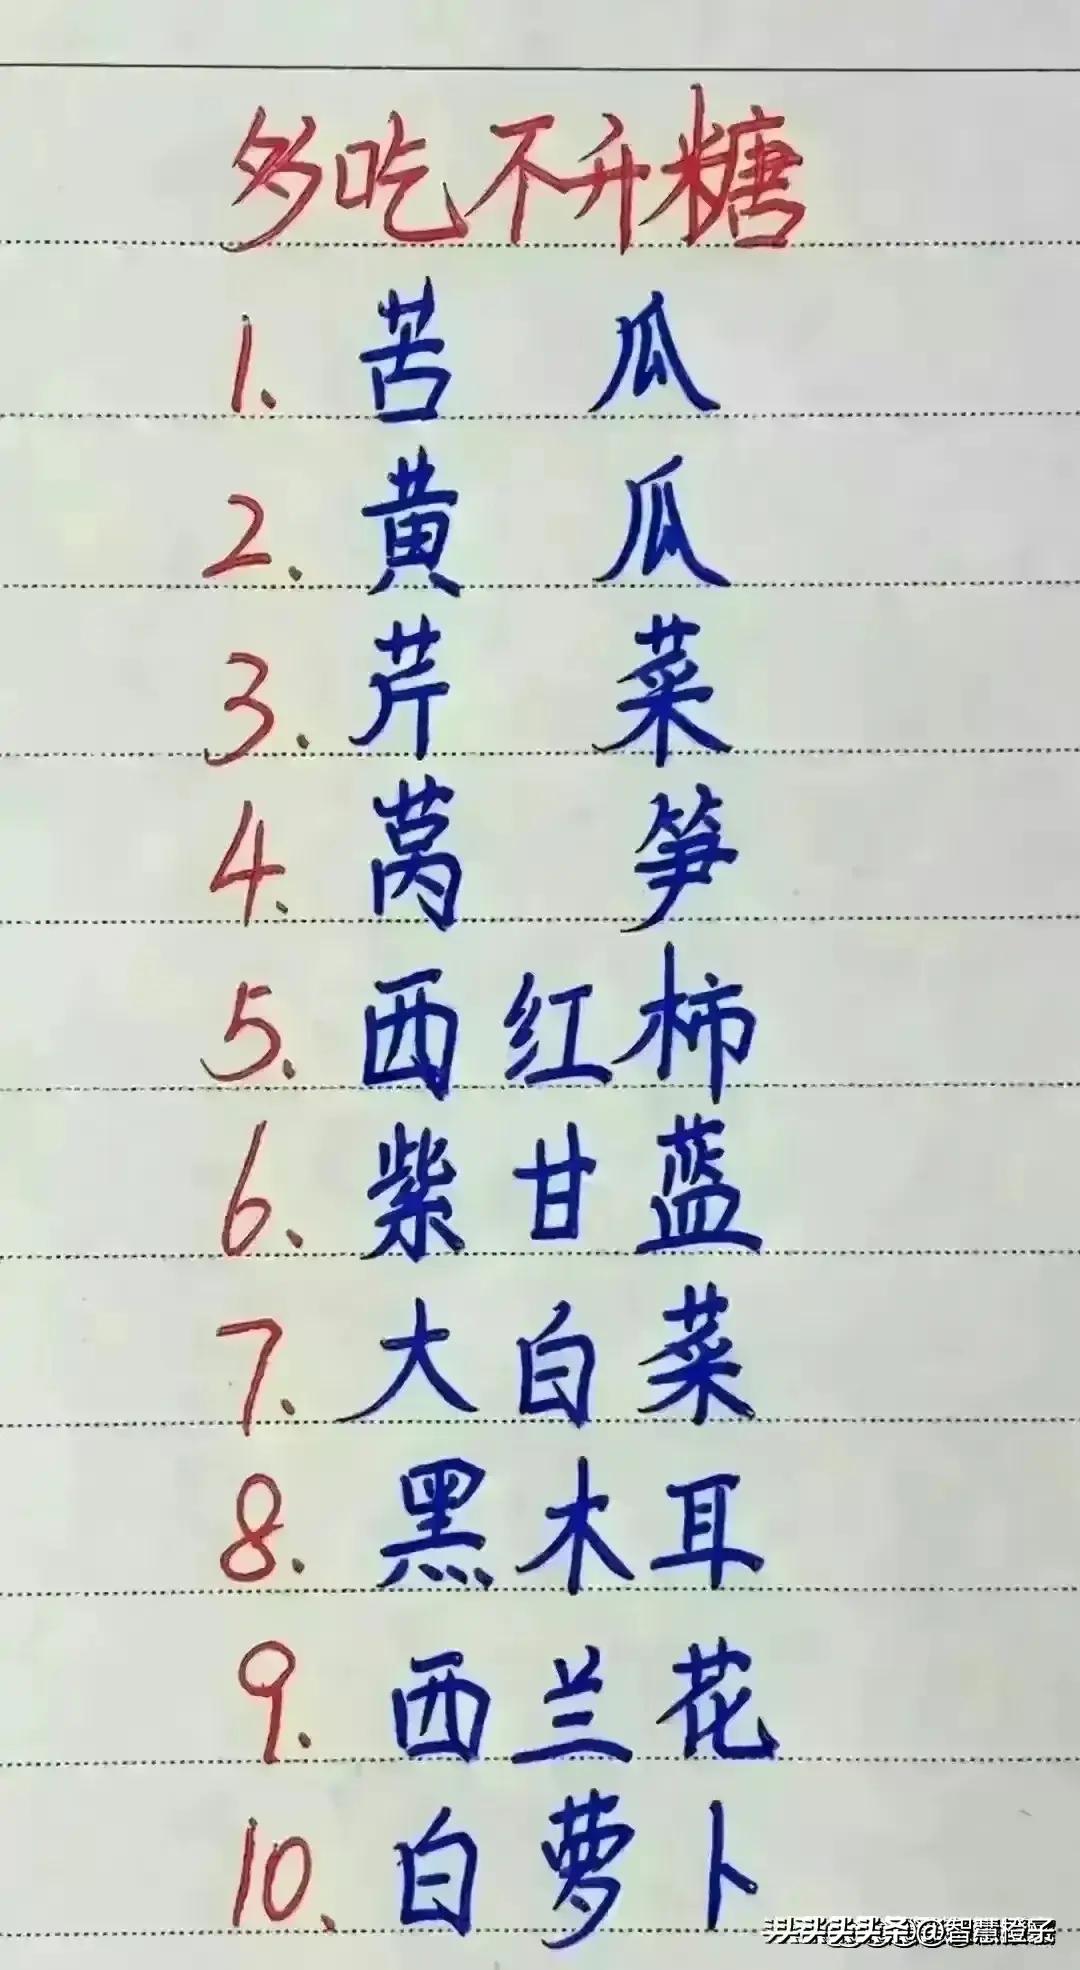 多吃不升糖
1. 苦瓜
2. 黄瓜
3. 芹菜
4. 莴笋
5. 西红柿
6. 紫甘蓝
7. 大白菜
8. 黑木耳
9. 西兰花
10. 白萝卜
@智慧橙子